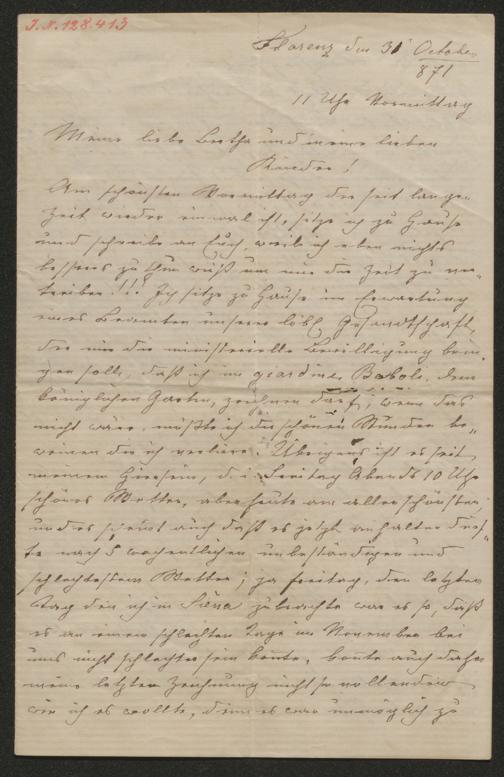 J.N. 128.413
Florenz den 31 October
871
11 Uhr Vormittag
Meine liebe Bertha und meine lieben
Kinder!
Am schönsten Vormittag der seit langer
Zeit wieder einmal ist, sitze ich zu Hause
und schreibe an Euch, weil ich eben nichts
besseres zu thun weiß um mir die Zeit zu ver-
treiben!!! Ich sitze zu Hause in Erwartung
eines Beamten unserer löbl Gesandtschaft,
der mir die ministerielle Bewilligung brin-
gen soll, daß ich im giardino Boboli, dem
königlichen Garten, zeichnen darf; wenn das
nicht wäre, müßte ich die schönen Stunden be-
weinen die ich verliere. Übrigens ist es seit
meinem Hiersein, d. i. Freitag Abends 10 Uhr
schönes Wetter, aber heute am allerschönsten,
und es scheint auch daß es jetzt anhalten dürf-
te nach 5 wochentlichen unbeständigen und
schlechtestem Wetter; ja Freitag, den letzten
Tag den ich in Siena zubrachte war es so, daß
es an einem schlechten Tage im November bei
uns nicht schlechter sein könnte, konnte auch daher
meine letzte Zeichnung nicht so vollenden
wie ich es wollte, denn es war unmöglich zu